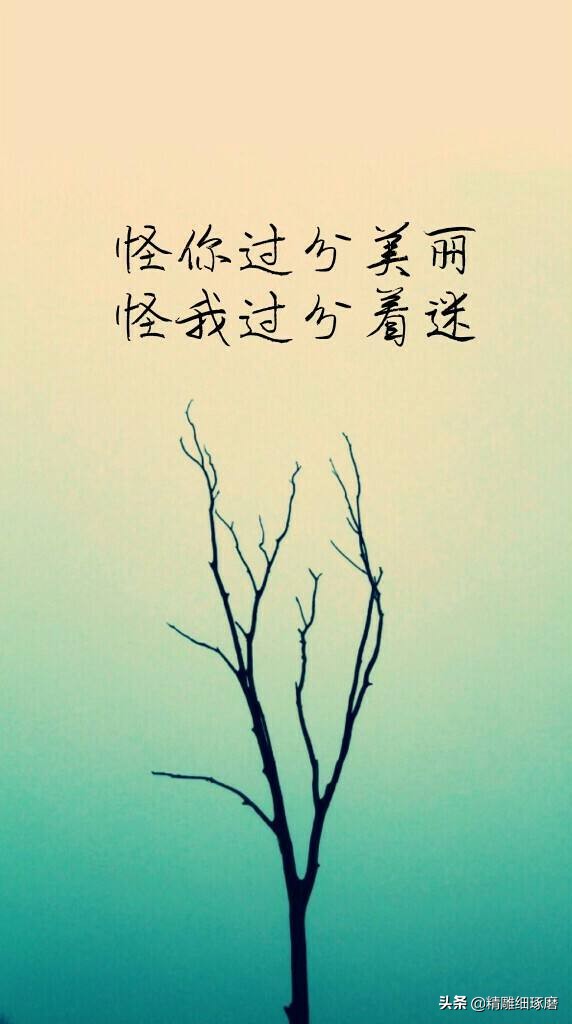 怪你过分美丽
怪我过分着迷
头条 @精雕细琢磨